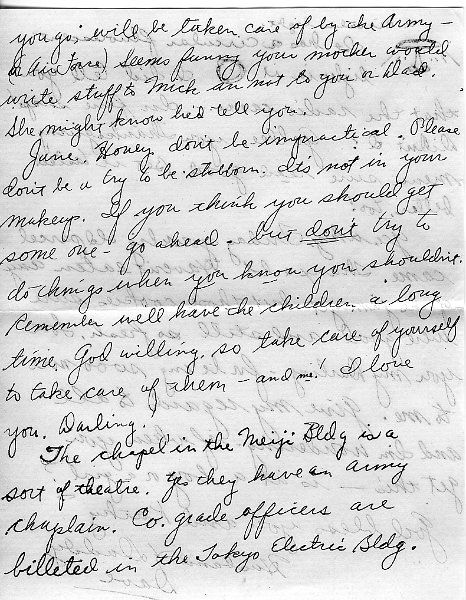 you go will be taken care of by the Army -
(& Air Force) Seems funny your mother would
write stuff to Mick an not to you or Dad.
She might know he'd tell you.
June. Honey dont be impractical. Please
don't be a try to be stubborn. It's not in your
makeup. If you think you should get
some one - go ahead. but don't try to
do things when you know you shouldn't.
Remember we'll have the children a long
time, God willing, so take care of yourself
to take care of them - and me! I love
you, Darling.
The chapel in the Meiji Bldg is a
sort of theatre. Yes they have an army
chaplain. Co. grade officers are
billeted in the Tokyo Electric Bldg.